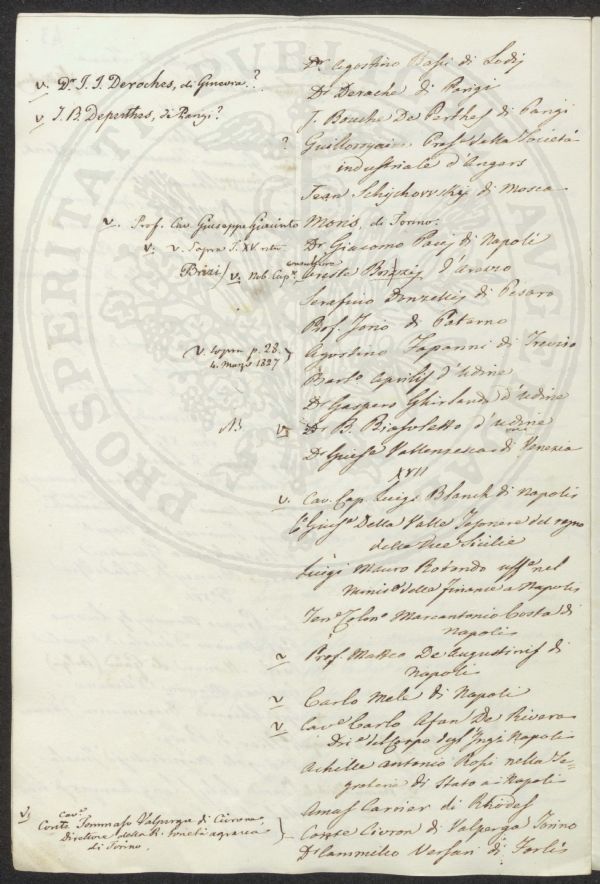 Dr. Agostino Bassi di Lodi
v. Dr. J. J. Deroches, di Ginevra? Dr Derache di Parigi
v. J. B. Deperthes, di Parigi? J. Bouche De Perthes di Parigi
? Prof. della Società
industriale d'Angers
Jean di Mosca
v. Prof. Cav. Giuseppe Giacinto Moris, di Torino.
v. v. Sopra S. XV Dr Giacomo di Napoli
Brizi) v. Nob. Cap.º Oreste d'Arezzo
Serafino Donzellij di Pesaro
Prof. Jorio di Paterno
v. sopra p. 28. Agostino Fapanni di Treviso
4. Marzo 1827
Barto Aprilis d'Udine
Dr Gaspero Ghirlanda d'Udine
NB v. Dr B. Biasoletto d'Udine
Dr Gius.e di Venezia
XVII
v. Cav. Cap. Luigi Blanch di Napoli
Della Valle Tesoriere del regno
delle Due Sicilie
Luigi Mauro Rotondo uff.e nel
Minis.o delle finanze a Napoli
Ten.e Colon.o Marcantonio Costa di
Napoli
v Prof. Matteo De Augustinis di
Napoli
v Carlo Mele di Napoli
v Cav.e Carlo Afan De Rivera
Dir.e del Corpo degl'Ing.i Napoli
Achille Antonio Rossi nella Se-
greteria di Stato a Napoli
Amas Carrier di Rhodes
v. Cav.e
Conte Tommaso Valperga di Civrone, Conte Civron di Valperga Torino
Direttore della R. Società agraria
di Torino. Dr Cammillo Versari di Forlì
PROSPERITATI PUBLICAE AUGENDAE